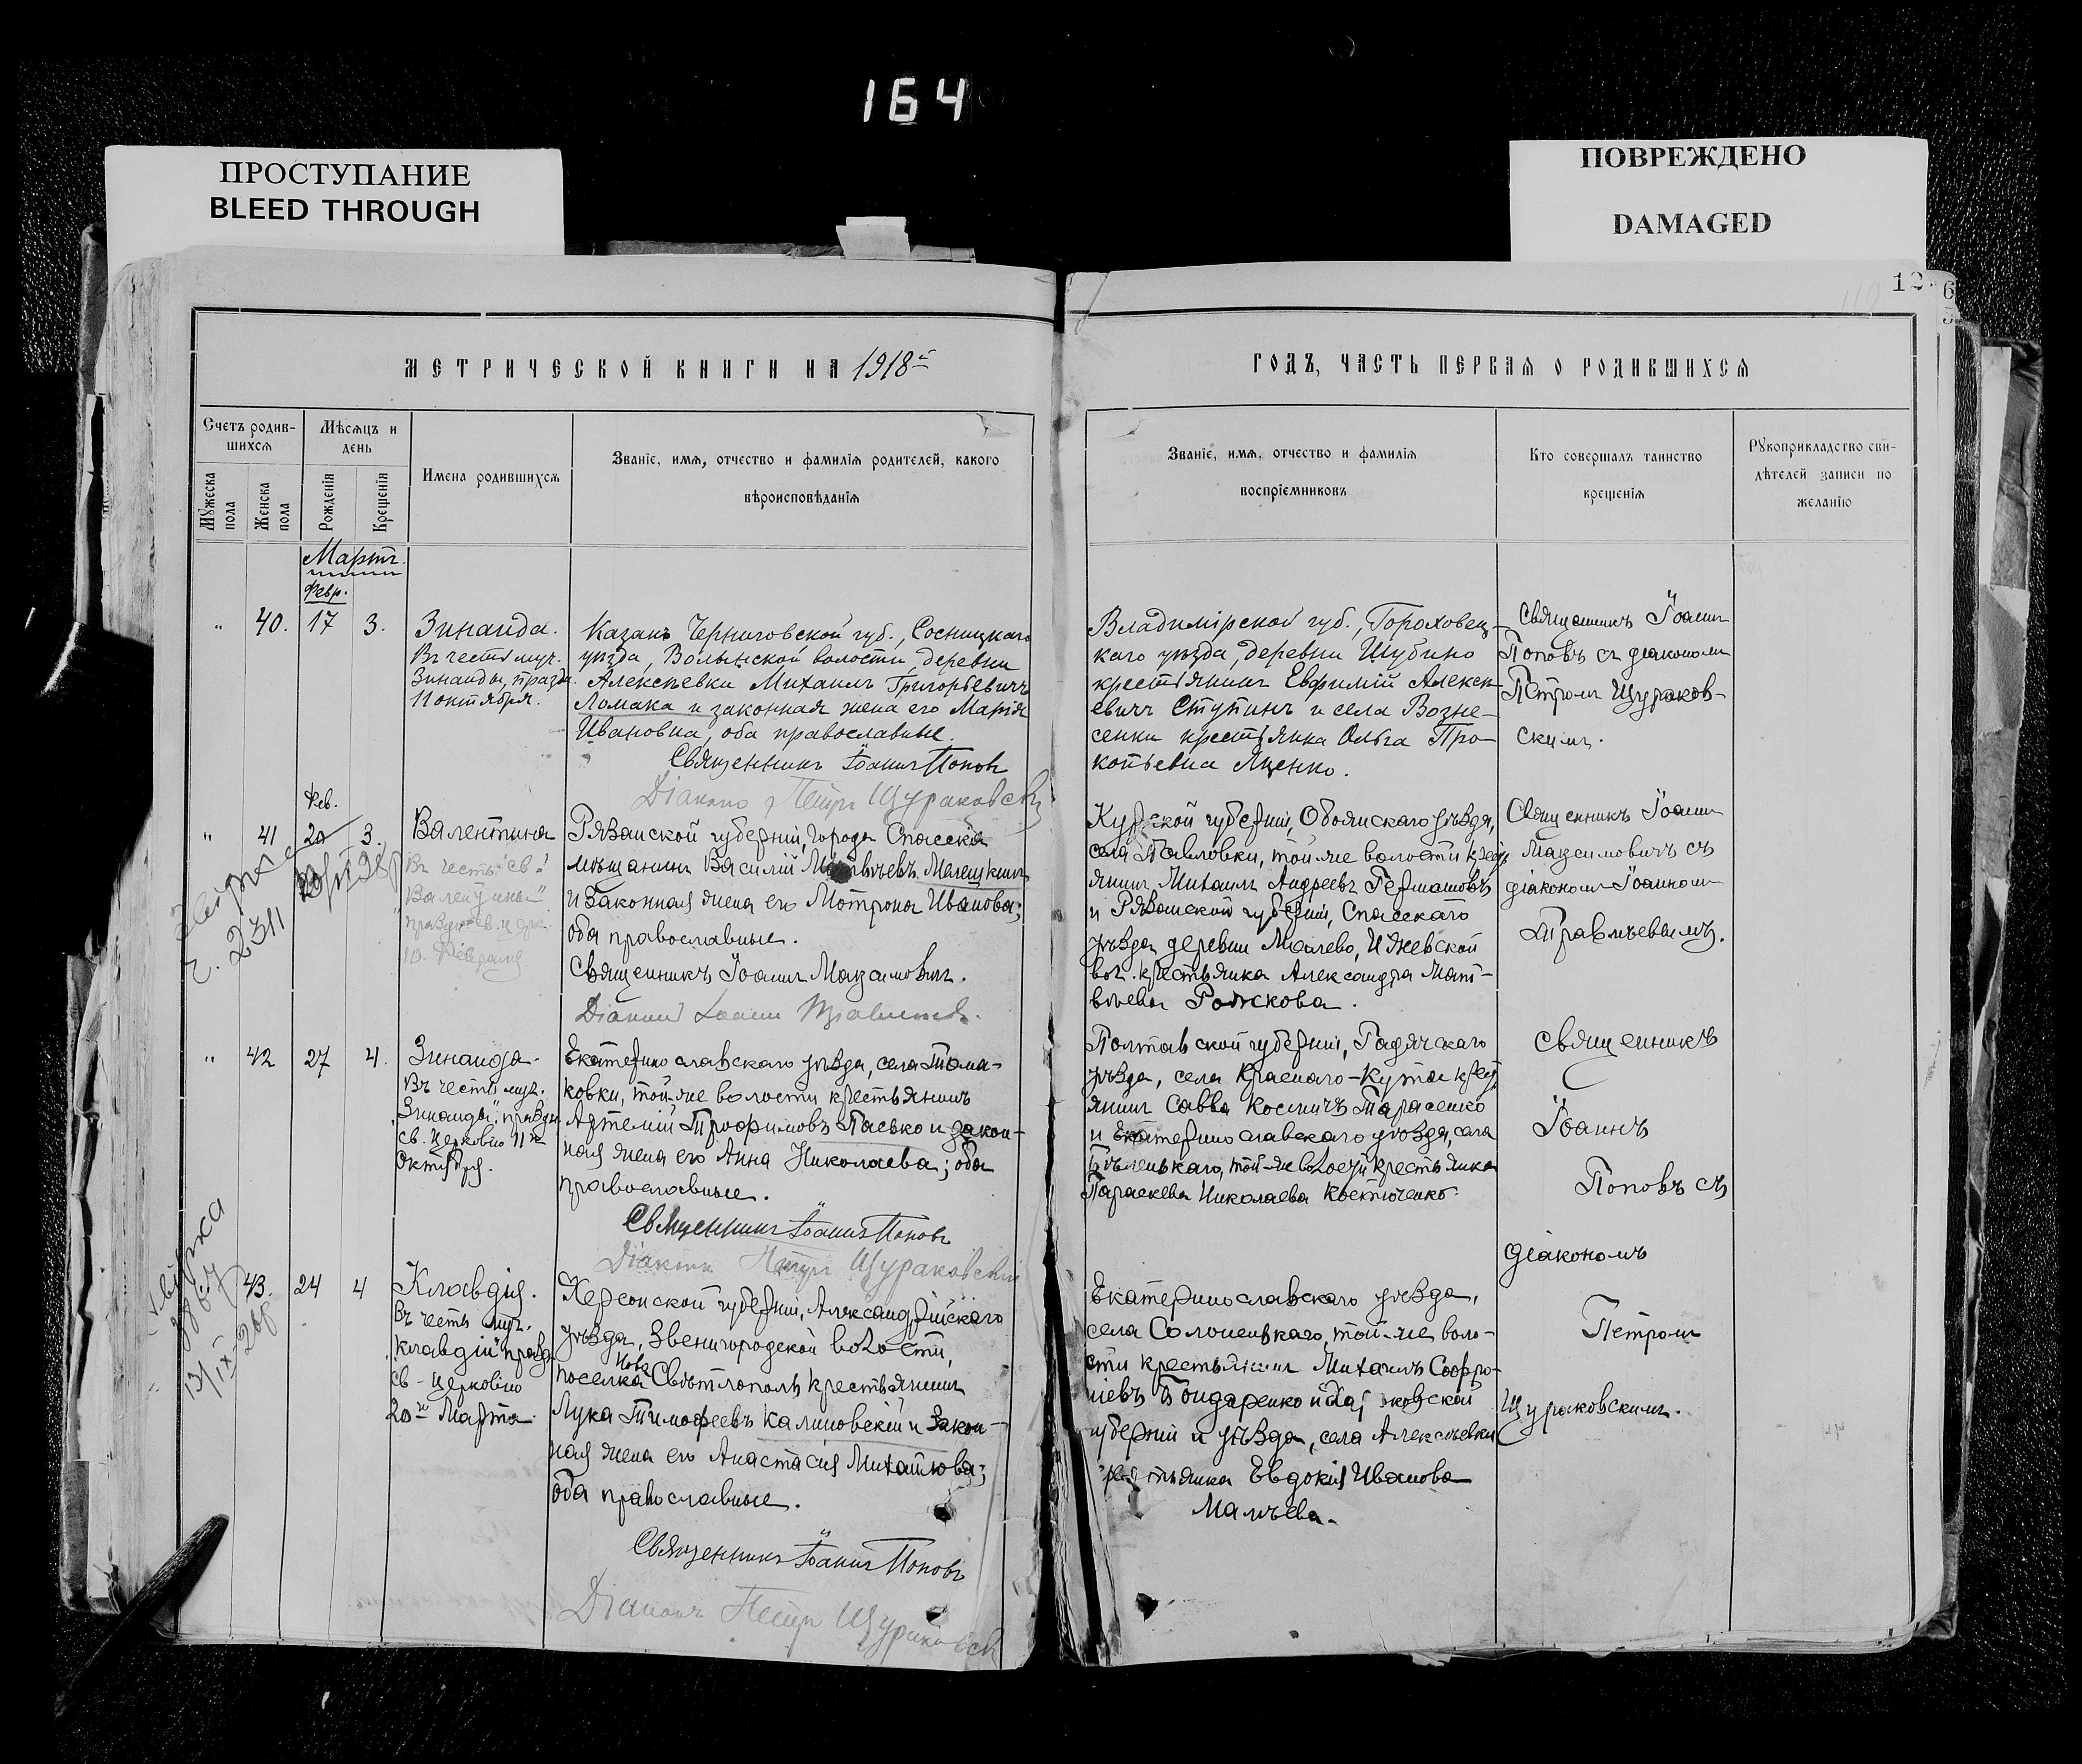 164
ПРОСТУПАНИЕ
BLEED THROUGH
ПОВРЕЖДЕНО
DAMAGED
12
МЕТРИЧЕСКОЙ КНИГИ НА 1918й
ГОДЪ, ЧАСТЬ ПЕРВАЯ О РОДИВШИХСЯ
Счетъ родив-
шихся
Мѣсяцъ и
день
Мужеска
пола
Женска
пола
Рожденія
Крещенія
Имена родившихся
Званіе, имя, отчество и фамилія родителей, какого
вѣроисповѣданія
Званіе, имя, отчество и фамилія
воспріемниковъ
Кто совершалъ таинство
крещенія
Рукоприкладство сви-
дѣтелей записи по
желанію
Мартъ.
Февр.
" 40. 17 3.
Зинаида.
Въ честь муч.
Зинаиды, празд.
11 октября.
Казакъ Черниговской губ., Сосницкаго
уѣзда, Волынской волости, деревни
Алексѣевки Михаилъ Григорьевичъ
Ломака и законная жена его Марія
Ивановна, оба православные.
Священникъ Іоаннъ Поповъ
Діаконъ Петръ Щураковскій
Владимірской губ., Гороховец-
каго уѣзда, деревни Шубино
крестьянинъ Евфимій Алексѣ-
евичъ Ступинъ и села Возне-
сенки крестьянка Ольга Про-
копьевна Яценко.
Священникъ Іоаннъ
Поповъ съ діакономъ
Петромъ Щураков-
скимъ.
Фев.
" 41 20 3.
Валентина
Въ честь св.
Валентины
10. Февраля
2311
Рязанской губерніи, города Спасска
мѣщанинъ Василій Мелешкинъ
и законная жена его Мотрона Иванова;
оба православные.
Священникъ Іоаннъ Максимовичъ.
Діаконъ Іоаннъ
Курской губерніи, Обоянскаго уѣзда,
села Павловки, той-же волости крест
янинъ Михаилъ Андреевъ
и Рязанской губерніи, Спасскаго
уѣзда деревни Малево, Ижевской
вол. крестьянка Александра Мат-
вѣева Рожкова.
Священникъ Іоаннъ
Максимовичъ съ
діакономъ Іоанномъ
" 42 27 4.
Зинаида.
Въ честь муч.
"Зинаиды", праздн.
св. Церковію 11го
Октября.
Екатеринославскаго уѣзда, села Тома-
ковки, той-же волости крестьянинъ
Артемій Трофимовъ Пасько и закон-
ная жена его Анна Николаева; оба
православные.
Священникъ Іоаннъ Поповъ
Діаконъ Петръ Щураковскій
Полтавской губерніи, Гадячскаго
уѣзда, села Краснаго-Кута крест
янинъ Савва Космичъ Тарасенко
и Екатеринославскаго уѣзда, села
Бѣленькаго, той-же волости крестьянка
Параскева Николаева Костюченко.
Священникъ
Іоаннъ
Поповъ съ
діакономъ
Петромъ
Щураковскимъ.
43. 24 4
Клавдія.
Въ честь муч.
"Клавдіи" празд.
св. Церковію
20го Марта
13/IX-26р
Херсонской губерніи, Александрійскаго
уѣзда, Звенигородской волости,
Ново
поселка Свѣтлополь крестьянинъ
Лука Тимофеевъ Калиновскій и закон-
ная жена его Анастасія Михайлова;
оба православные.
Священникъ Іоаннъ Поповъ
Діаконъ Петръ Щураковскій
Екатеринославскаго уѣзда,
села Солоненькаго, той-же воло-
сти крестьянинъ Михаилъ Софро-
ніевъ Бондаренко и Харьковской
губерніи и уѣзда, села Алексѣевки
крестьянка Евдокія Иванова
Мальева.